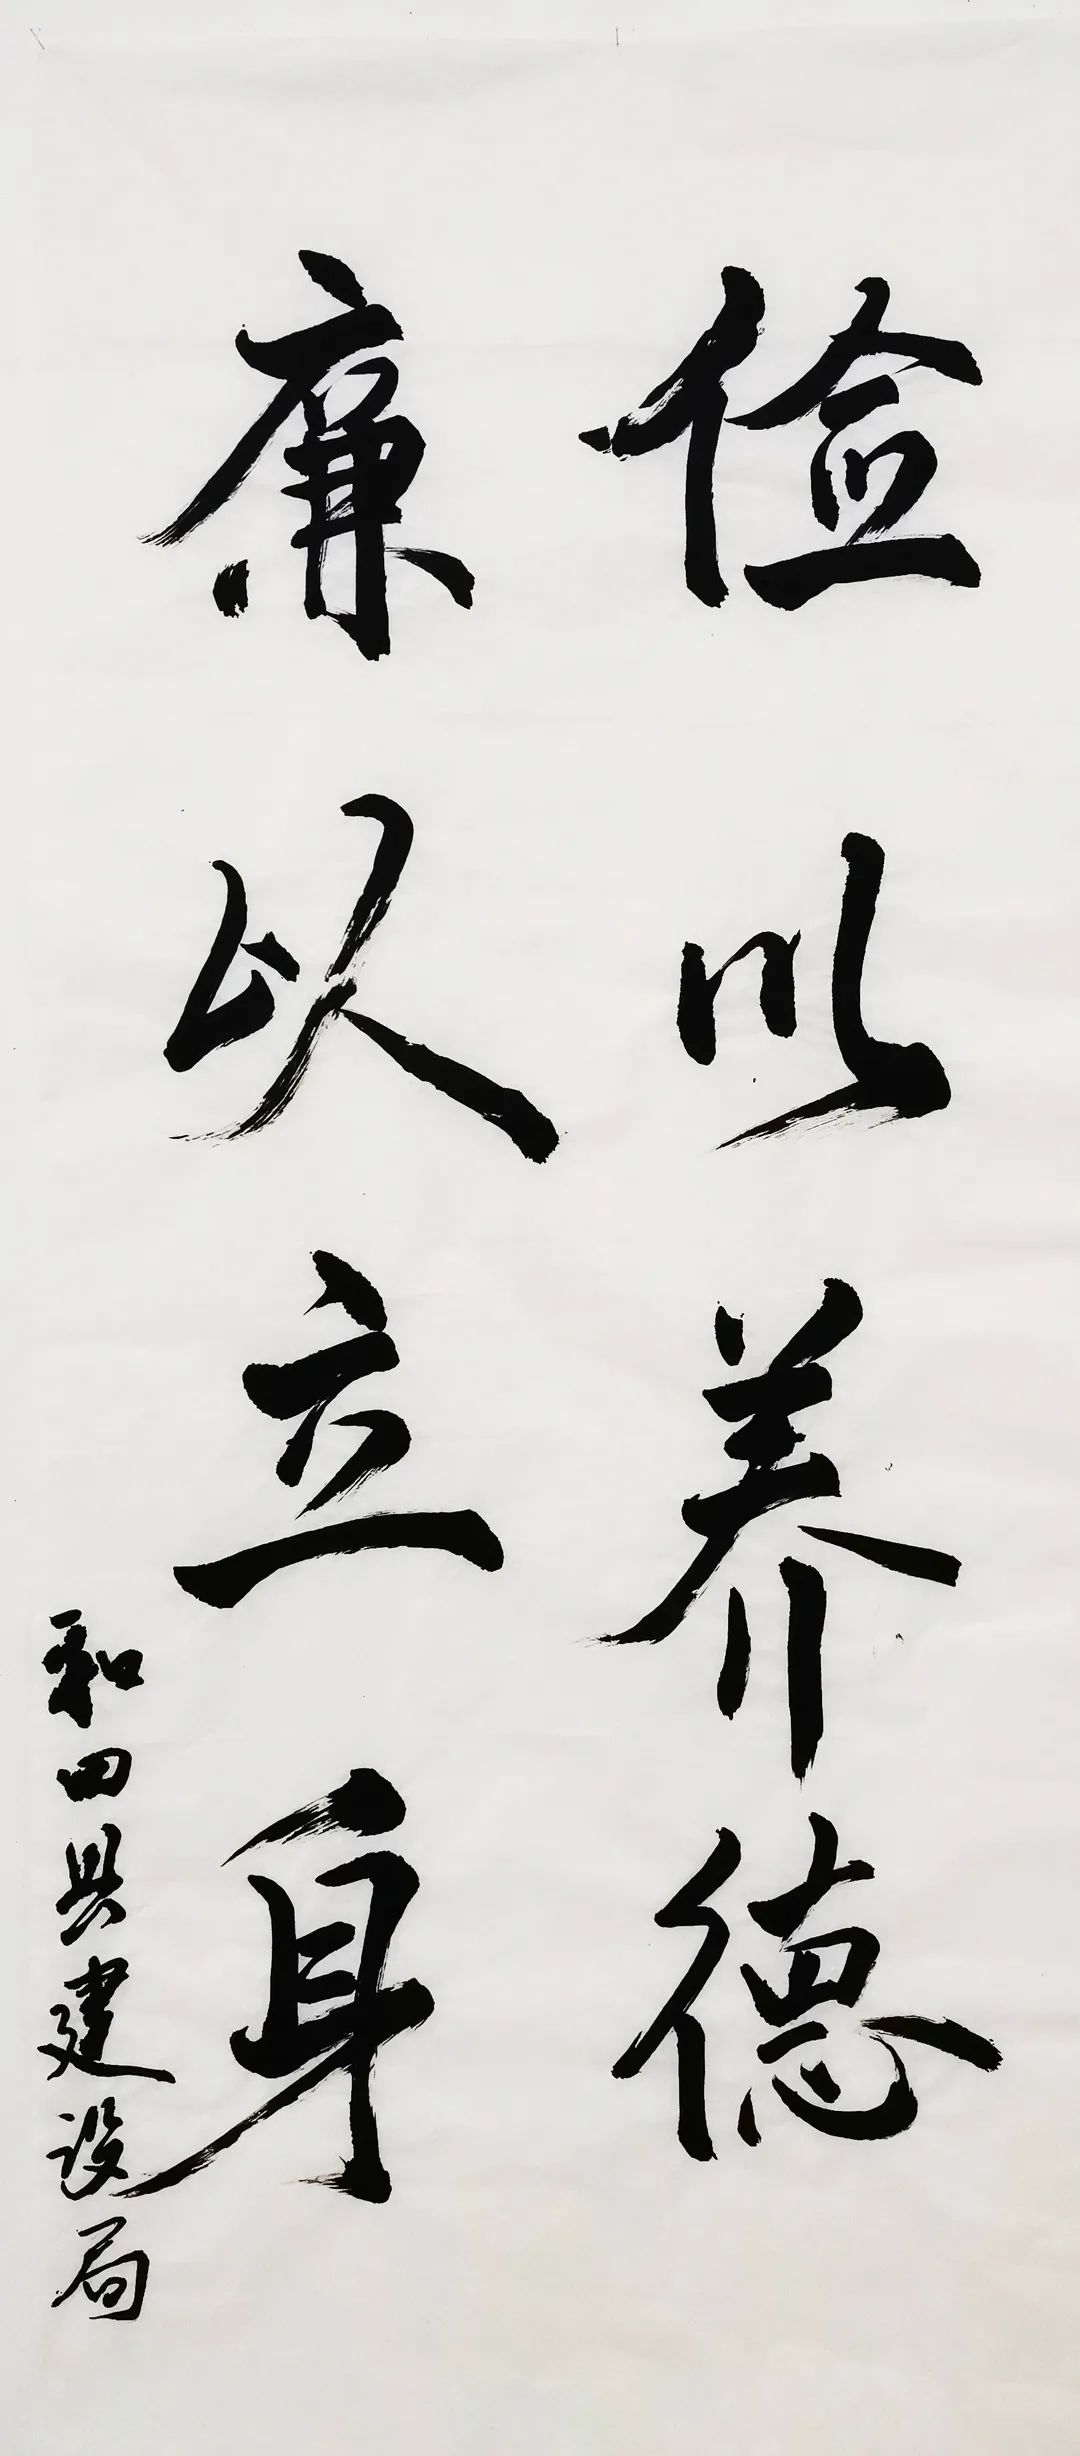 俭以养德
廉以立身
和田县建设局